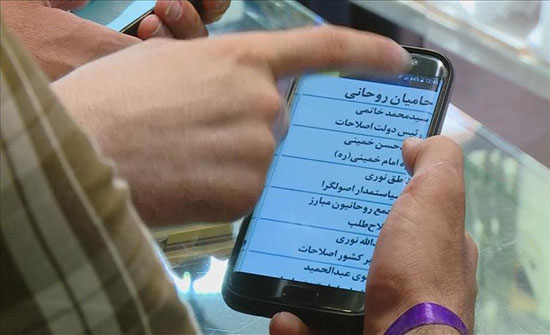 حامیان روحانی
سیدمحمد خاتمی
رئیس دولت اصلاحات
حسن خمینی
امام خمینی(ره)
طق نوری
سیاستمدار اصولگرا
جمع روحانیون مبارز
لاح‌طلب
دالله نوری
بر کشور اصلاحات
وی عبدالحمید